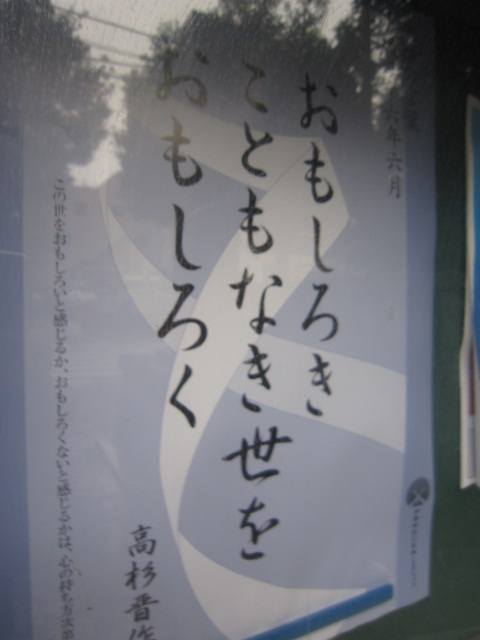 六年六月
おもしろき
こともなき世を
おもしろく
高杉晋作
この世をおもしろいと感じるか、おもしろくないと感じるかは、心の持ち方次第